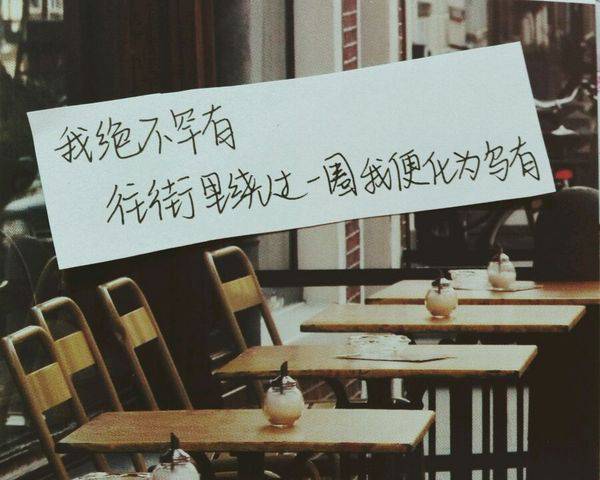 我绝不罕有
往街里绕过一圈我便化为乌有